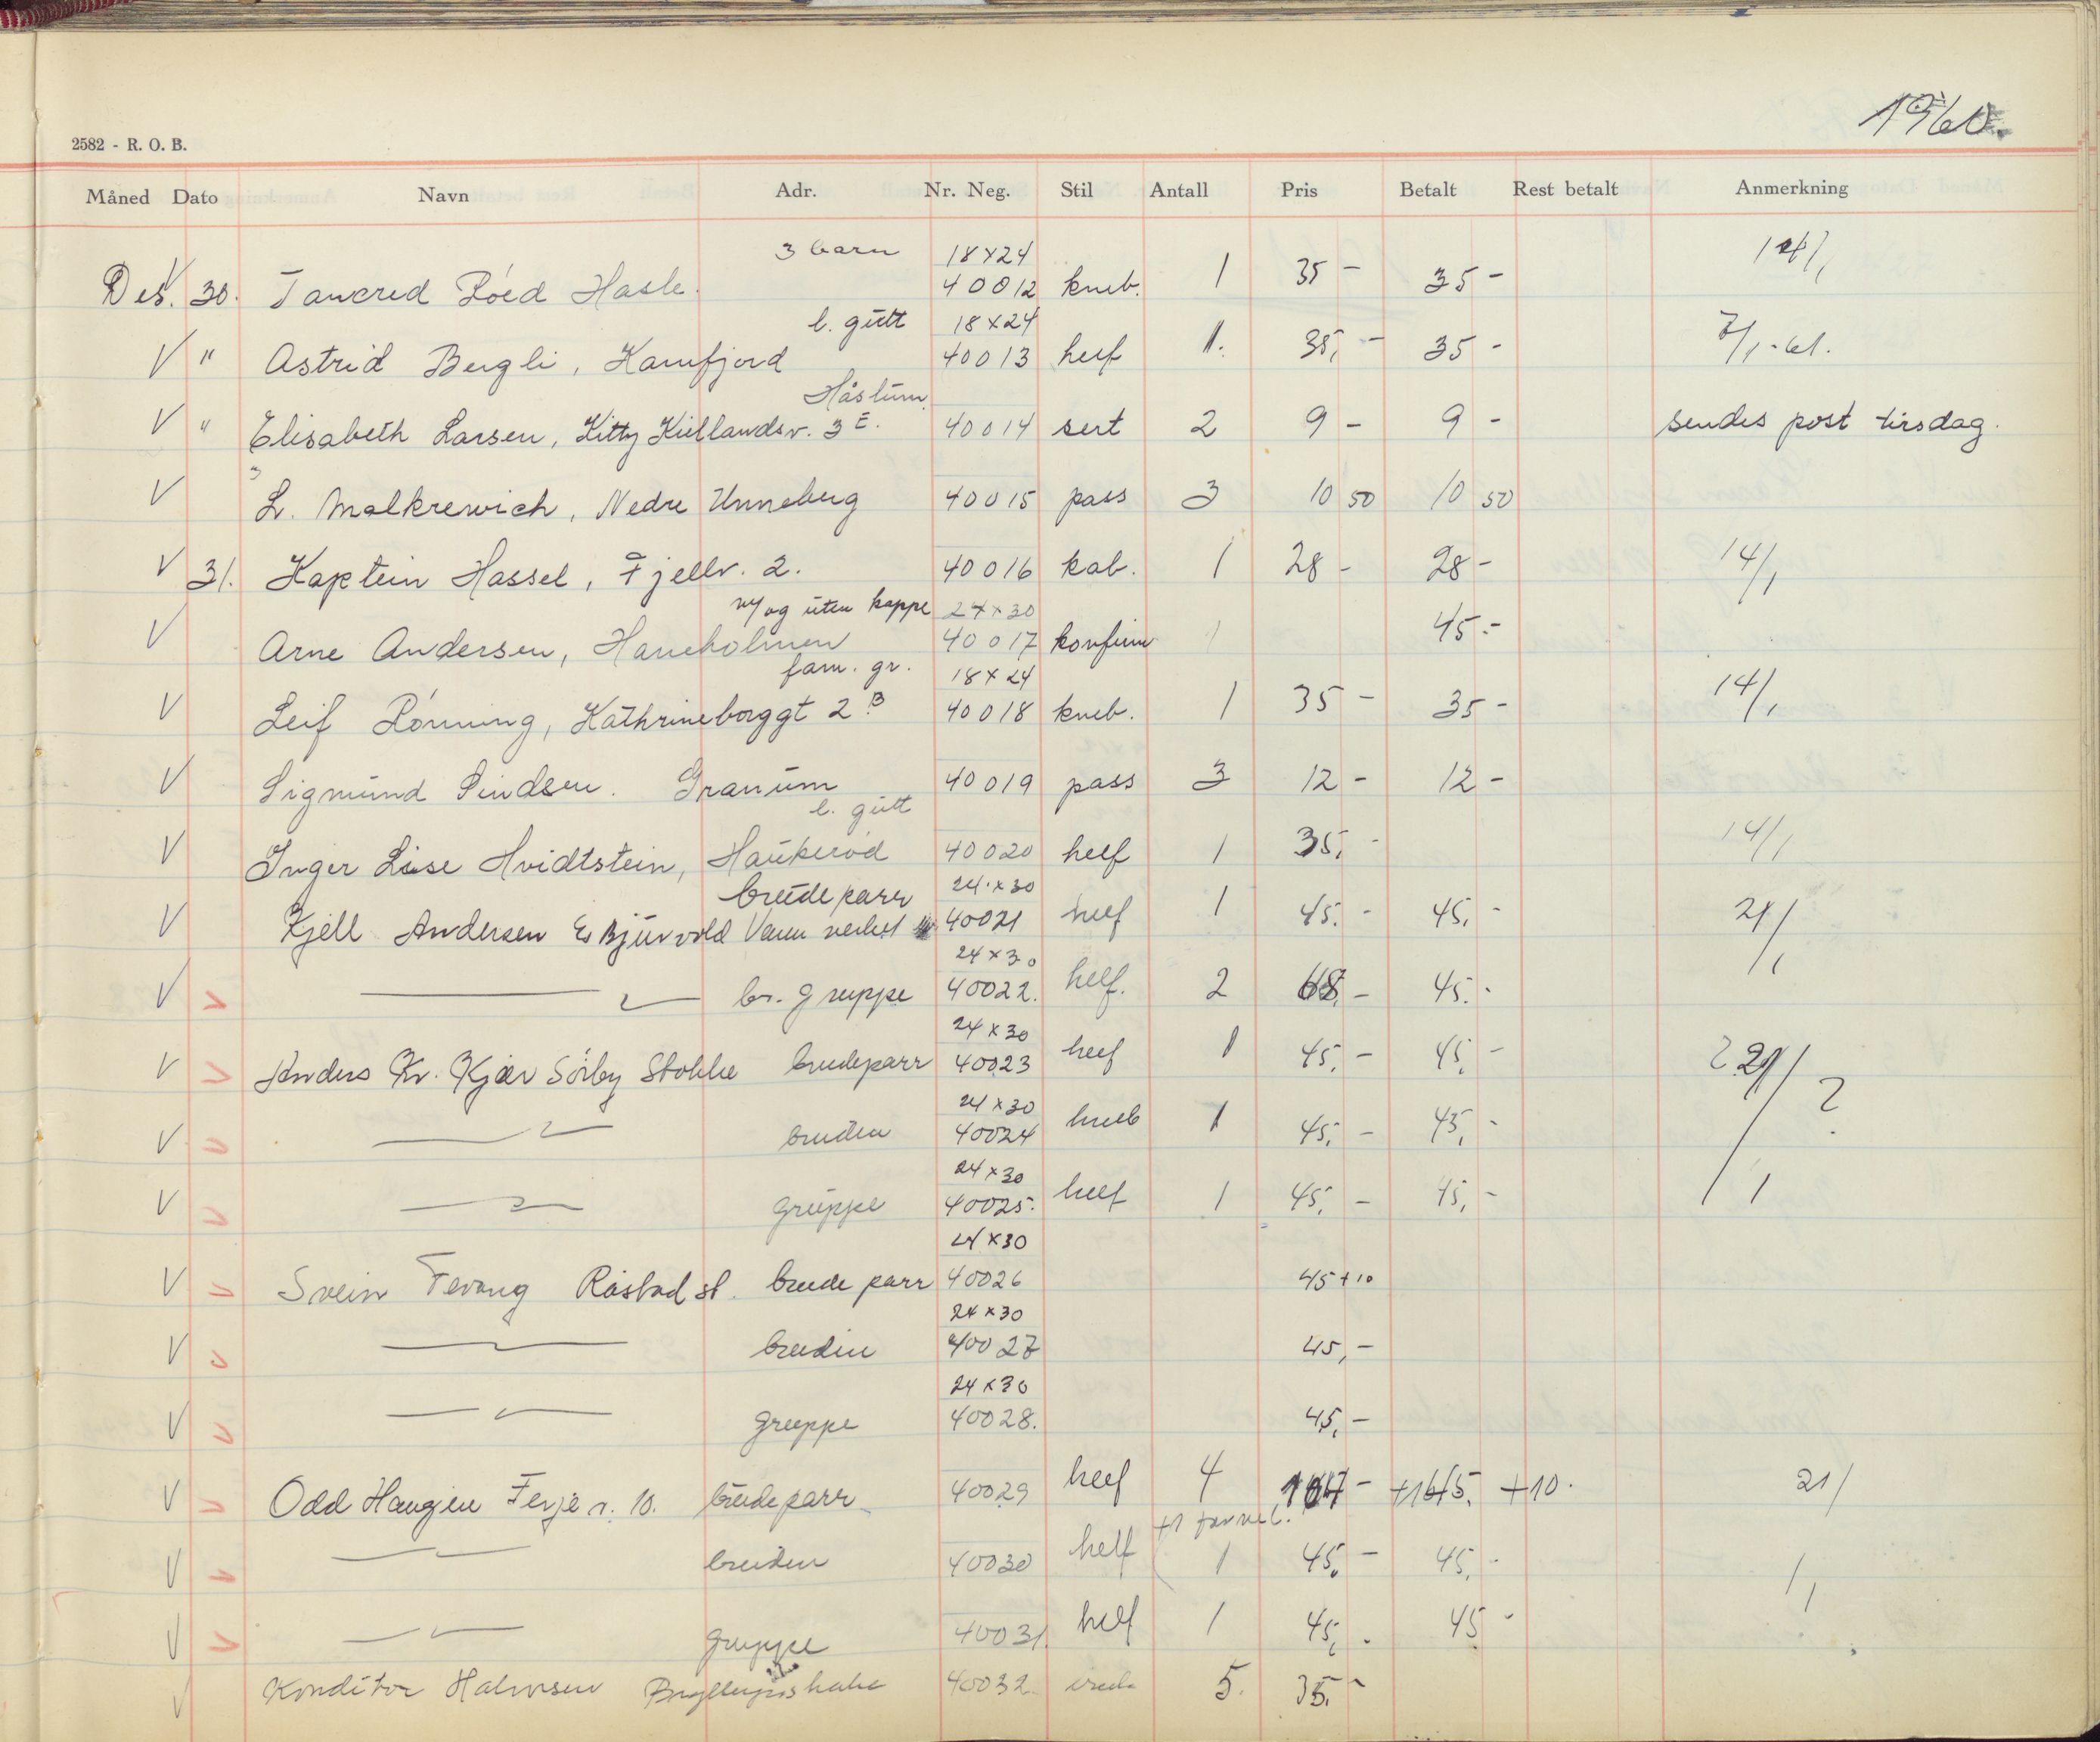 1960.
2582 - R. O. B.
Måned Dato Navn Adr. Nr. Neg. Stil Antall Pris Betalt Rest betalt Anmerkning
3 barn 18x24
Des. 30. Tancred Róed Hasle. 40012 kneb. 1 35 - 35 - 14/1
l. gutt 18x24
V " Astrid Bergli, Kamfjord 40013 helf 1. 35,- 35 - 7/1-61.
Håslum
V " Elisabeth Larsen, Kitty Kiellandsv. 3 E. 40014 sert 2 9 - 9 - sendes post tirsdag.
V L. Malkrewich, Nedre Unneberg 40015 pass 3 10 50 10 50
V 31. Kaptein Hassel, Fjellv. 2. 40016 kab. 1 28 - 28 - 14/1
m/og uten kappe 24x30
V Arne Andersen, Haneholmen 40017 konfirm 1 45.-
fam. gr. 18x24
V Leif Rónning, Kathrineborggt 2 B 40018 kneb. 1 35 - 35 - 14/1
V Sigmund Lindsen. Granum 40019 pass 3 12 - 12 -
l. gutt
V Inger Lise Hvidtstein, Haukeród 40020 helf 1 35,- 14/1
brudeparr 24x30
V Kjell Andersen 40021 helf 1 45.- 45,- 21/1
24x30
V br. gruppe 40022. helf. 2 68,- 45.-
24x30
V Anders Kr. Kjær Sórby Stokke brudeparr 40023 helf 1 45,- 45,- 2 21/1 ?
24x30
V bruden 40024 kneb 1 45,- 45,-
24x30
V gruppe 40025. helf 1 45,- 45,-
24x30
V Svein Fevang Råstad st. brudeparr 40026 45+10
24x30
V bruden 40027 45,-
24x30
V gruppe 40028. 45,-
V Odd Haugen Ferjev. 10. brudeparr 40029 helf 4 +10. 21/1
V bruden 40030 helf 1 45,- 45,-
V gruppe 40031. helf 1 45,- 45 -
V Konditor Halvorsen Bryllupskake 40032 5. 35,-